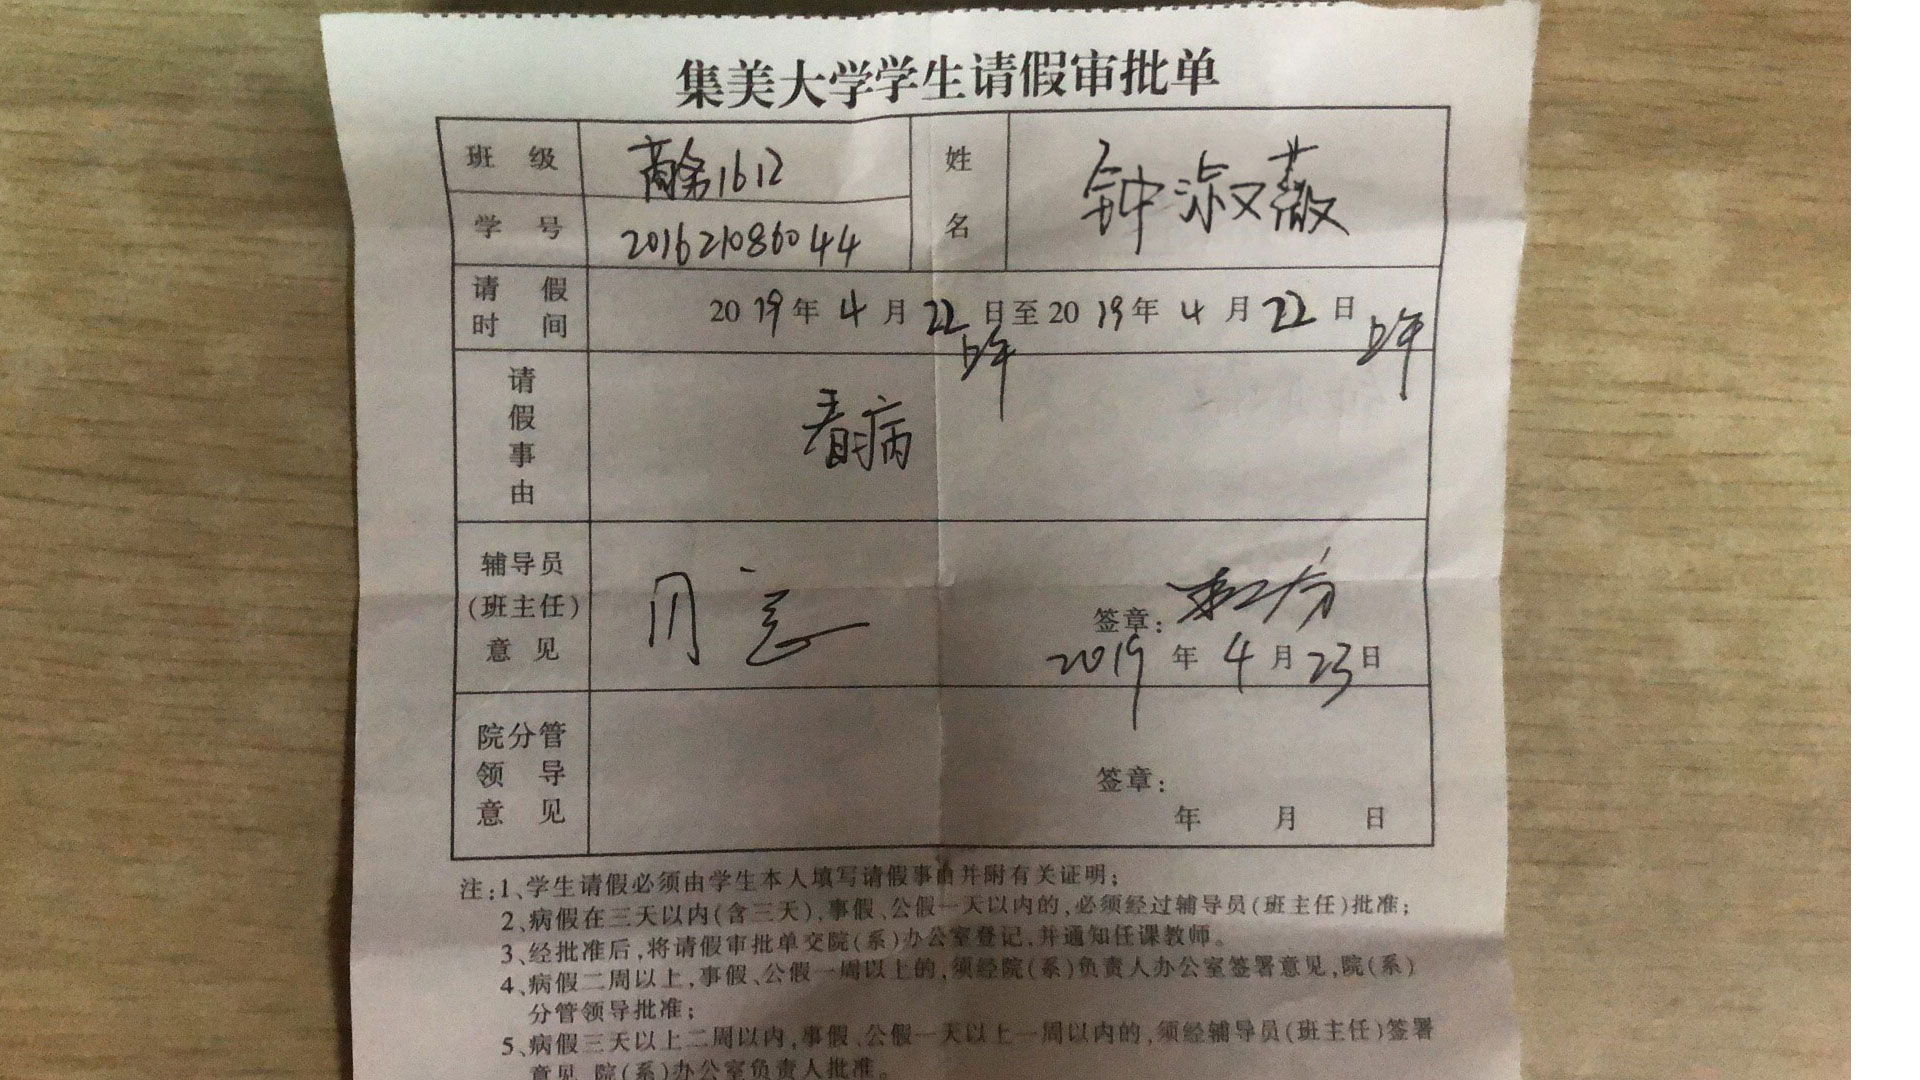 集美大学学生请假审批单
班级 商务1612 姓名 钟淑薇
学号 201621086044
请假时间 2019年4月22日上午至2019年4月22日上午
请假事由 看病
辅导员(班主任)意见 同意 签章:
2019年4月23日
院分管领导意见 签章:
年 月 日
注:1、学生请假必须由学生本人填写请假事由并附有关证明;
2、病假在三天以内(含三天),事假、公假一天以内的,必须经过辅导员(班主任)批准;
3、经批准后,将请假审批单交院(系)办公室登记,并通知任课教师。
4、病假二周以上,事假、公假一周以上的,须经院(系)负责人办公室签署意见,院(系)
分管领导批准;
5、病假三天以上二周以内,事假、公假一天以上一周以内的,须经辅导员(班主任)签署
意见,院(系)办公室负责人批准。